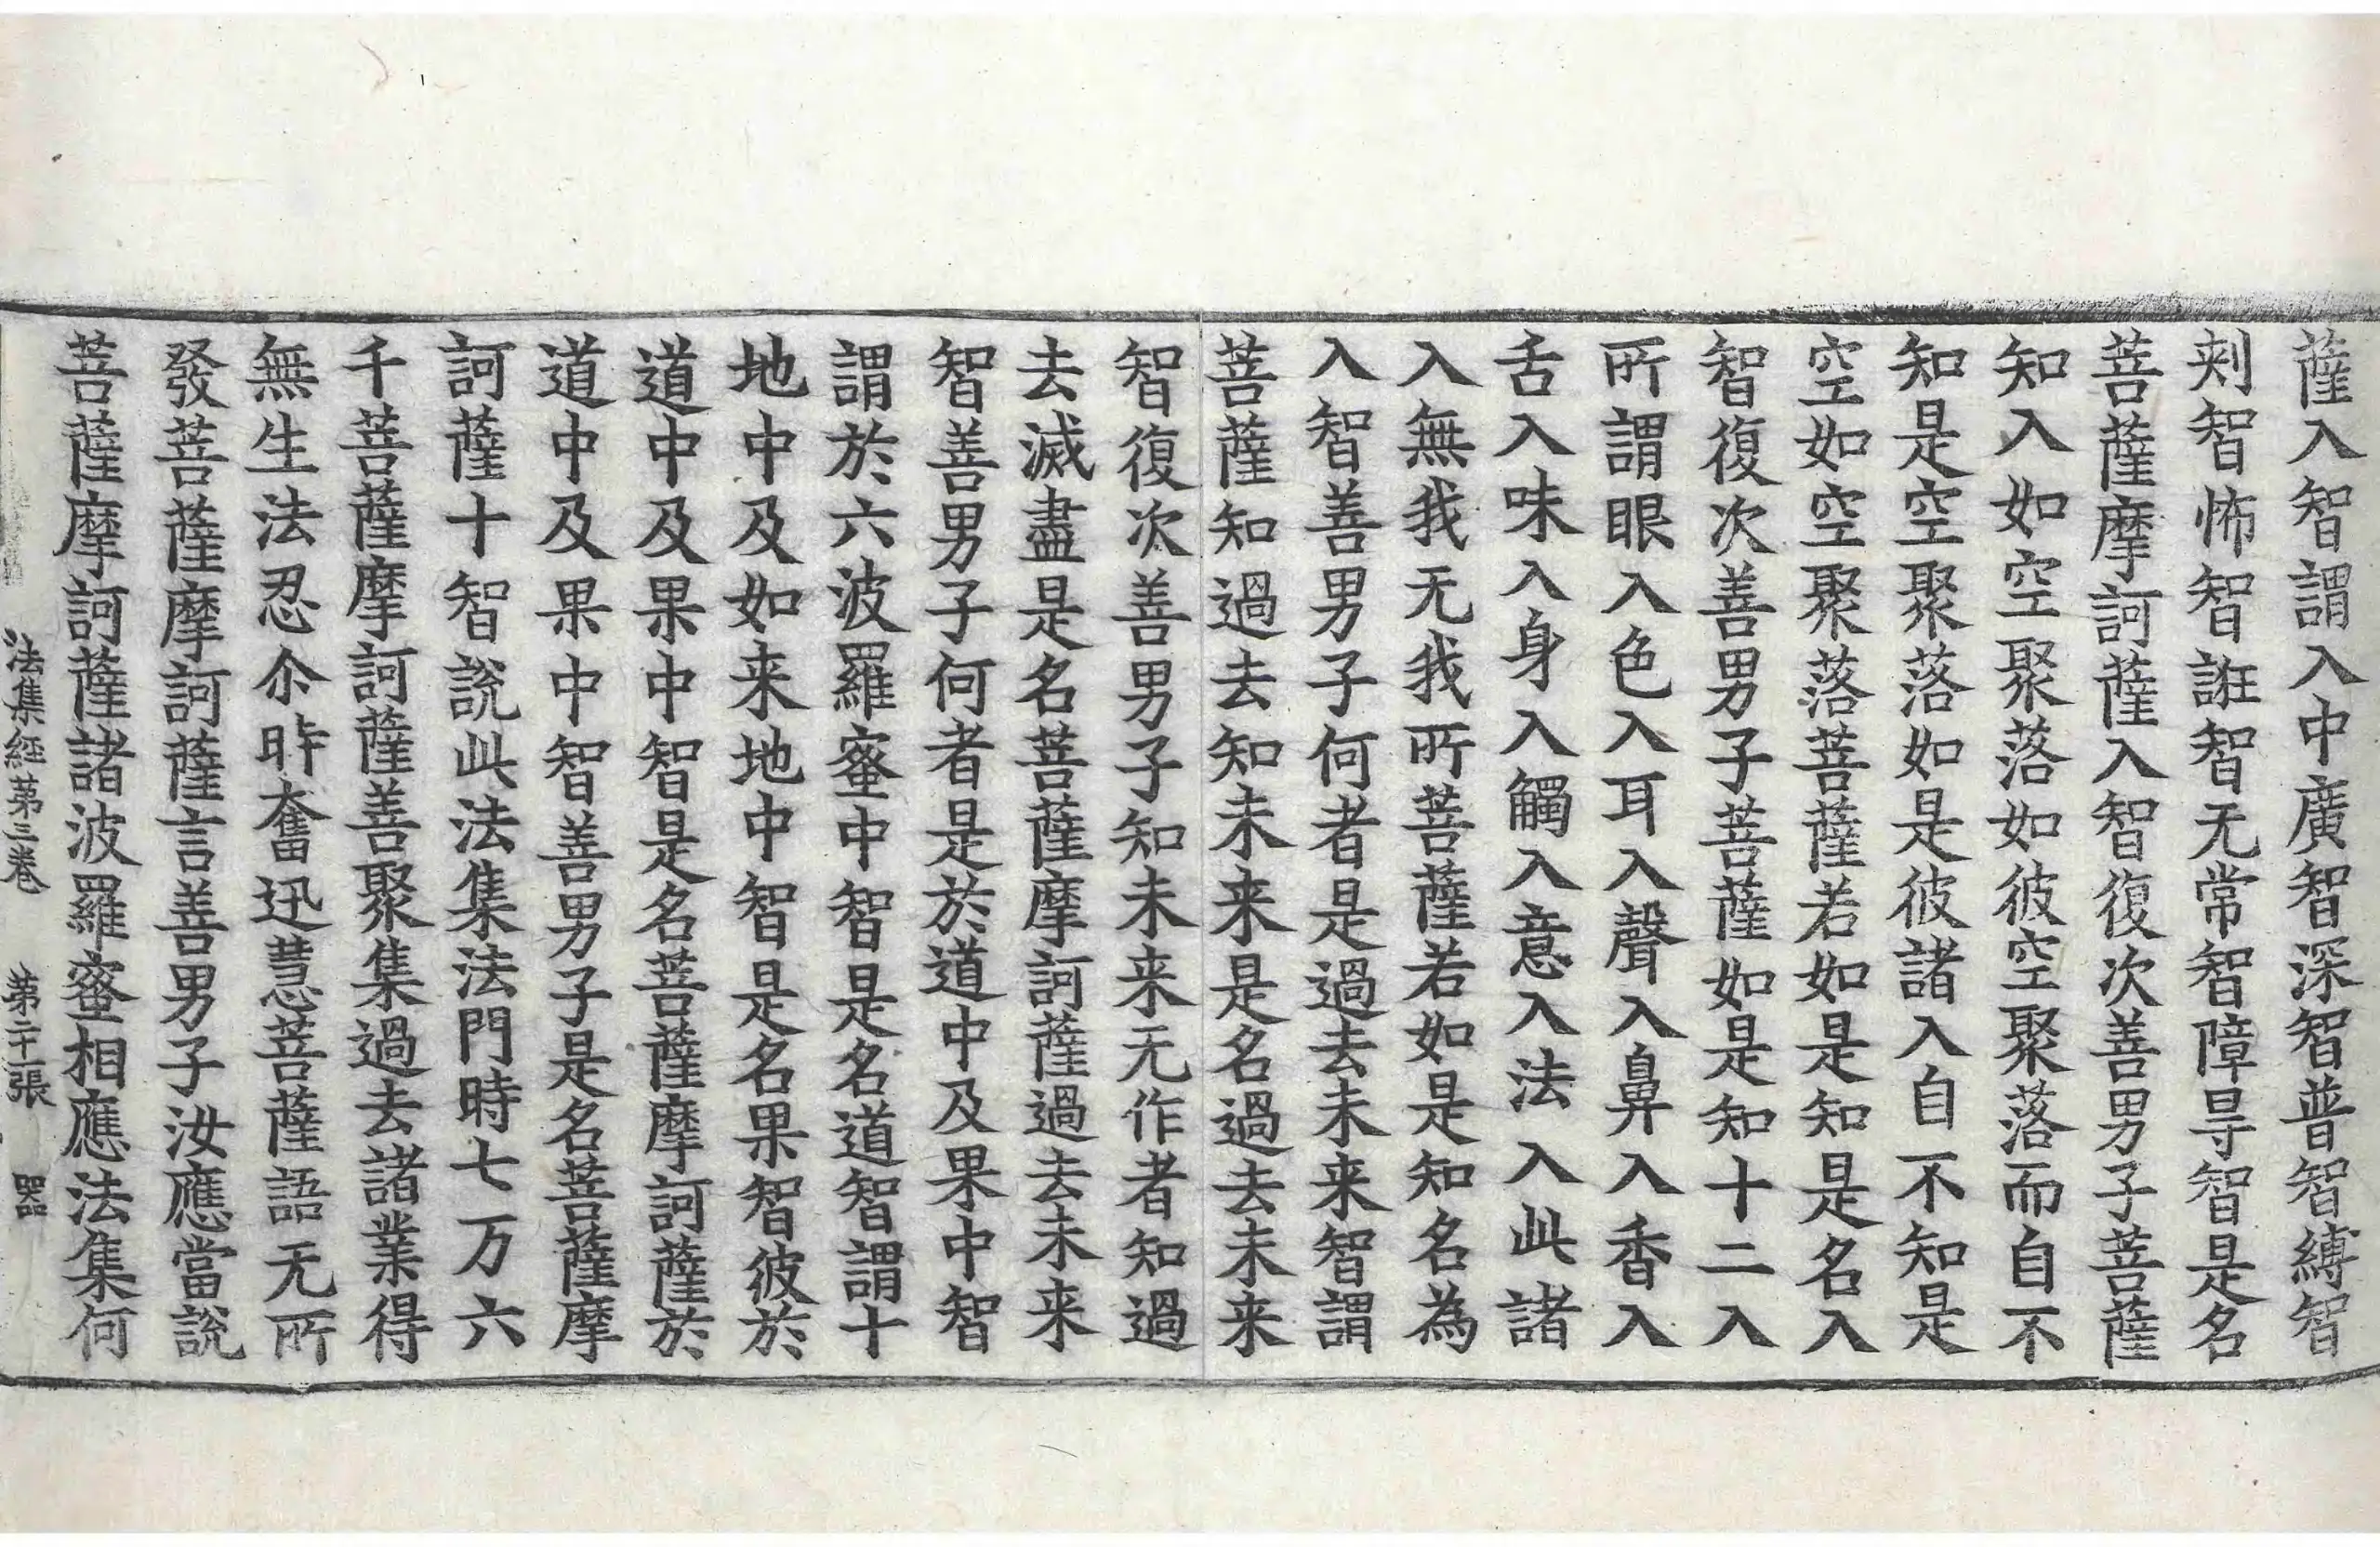 薩入智謂入中廣智深智普智縛智
刾智怖智誑智无常智障㝵智是名
菩薩摩訶薩入智復次善男子菩薩
知入如空聚落如彼空聚落而自不
知是空聚落如是彼諸入自不知是
空如空聚落菩薩若如是知是名入
智復次善男子菩薩如是知十二入
所謂眼入色入耳入聲入鼻入香入
舌入味入身入觸入意入法入此諸
入無我无我所菩薩若如是知名為
入智善男子何者是過去未来智謂
菩薩知過去知未来是名過去未来
智復次善男子知未来无作者知過
去滅盡是名菩薩摩訶薩過去未来
智善男子何者是於道中及果中智
謂於六波羅蜜中智是名道智謂十
地中及如来地中智是名果智彼於
道中及果中智是名菩薩摩訶薩於
道中及果中智善男子是名菩薩摩
訶薩十智說此法集法門時七万六
千菩薩摩訶薩善聚集過去諸業得
無生法忍尒時奮迅慧菩薩語无所
發菩薩摩訶薩言善男子汝應當說
菩薩摩訶薩諸波羅蜜相應法集何
法集經第三卷 第二十一張 器